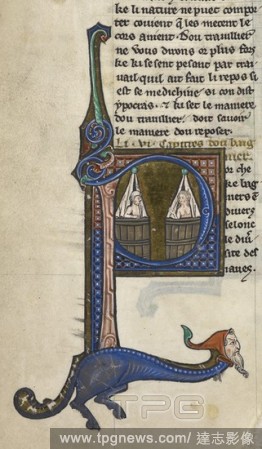 ke li nature ne puet compor
ter couient q̄ les mecent le
cors amient. Dou trauillier
ne vous dirons or plus fors
ke ki se sent pesant par tra
uail quil ait fait li repos si
est se medichine si con dist
ypocras. & ki set le maniere
dou trauillier. doit sauoir
le maniere dou reposer.
Li .vi. capitres dou baig
nier.
or che
ke baig
ners
diuers
selonc
le diuer
site des
iaues.
TPG
www.tpgnews.com/達志影像